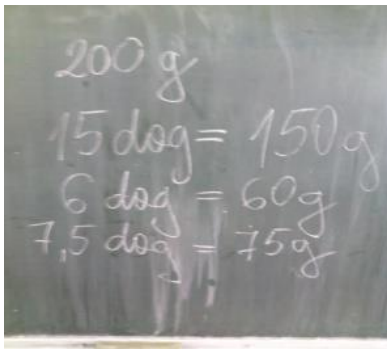 200 g
15 dog = 150 g
6 dog = 60g
7,5 dog = 75g